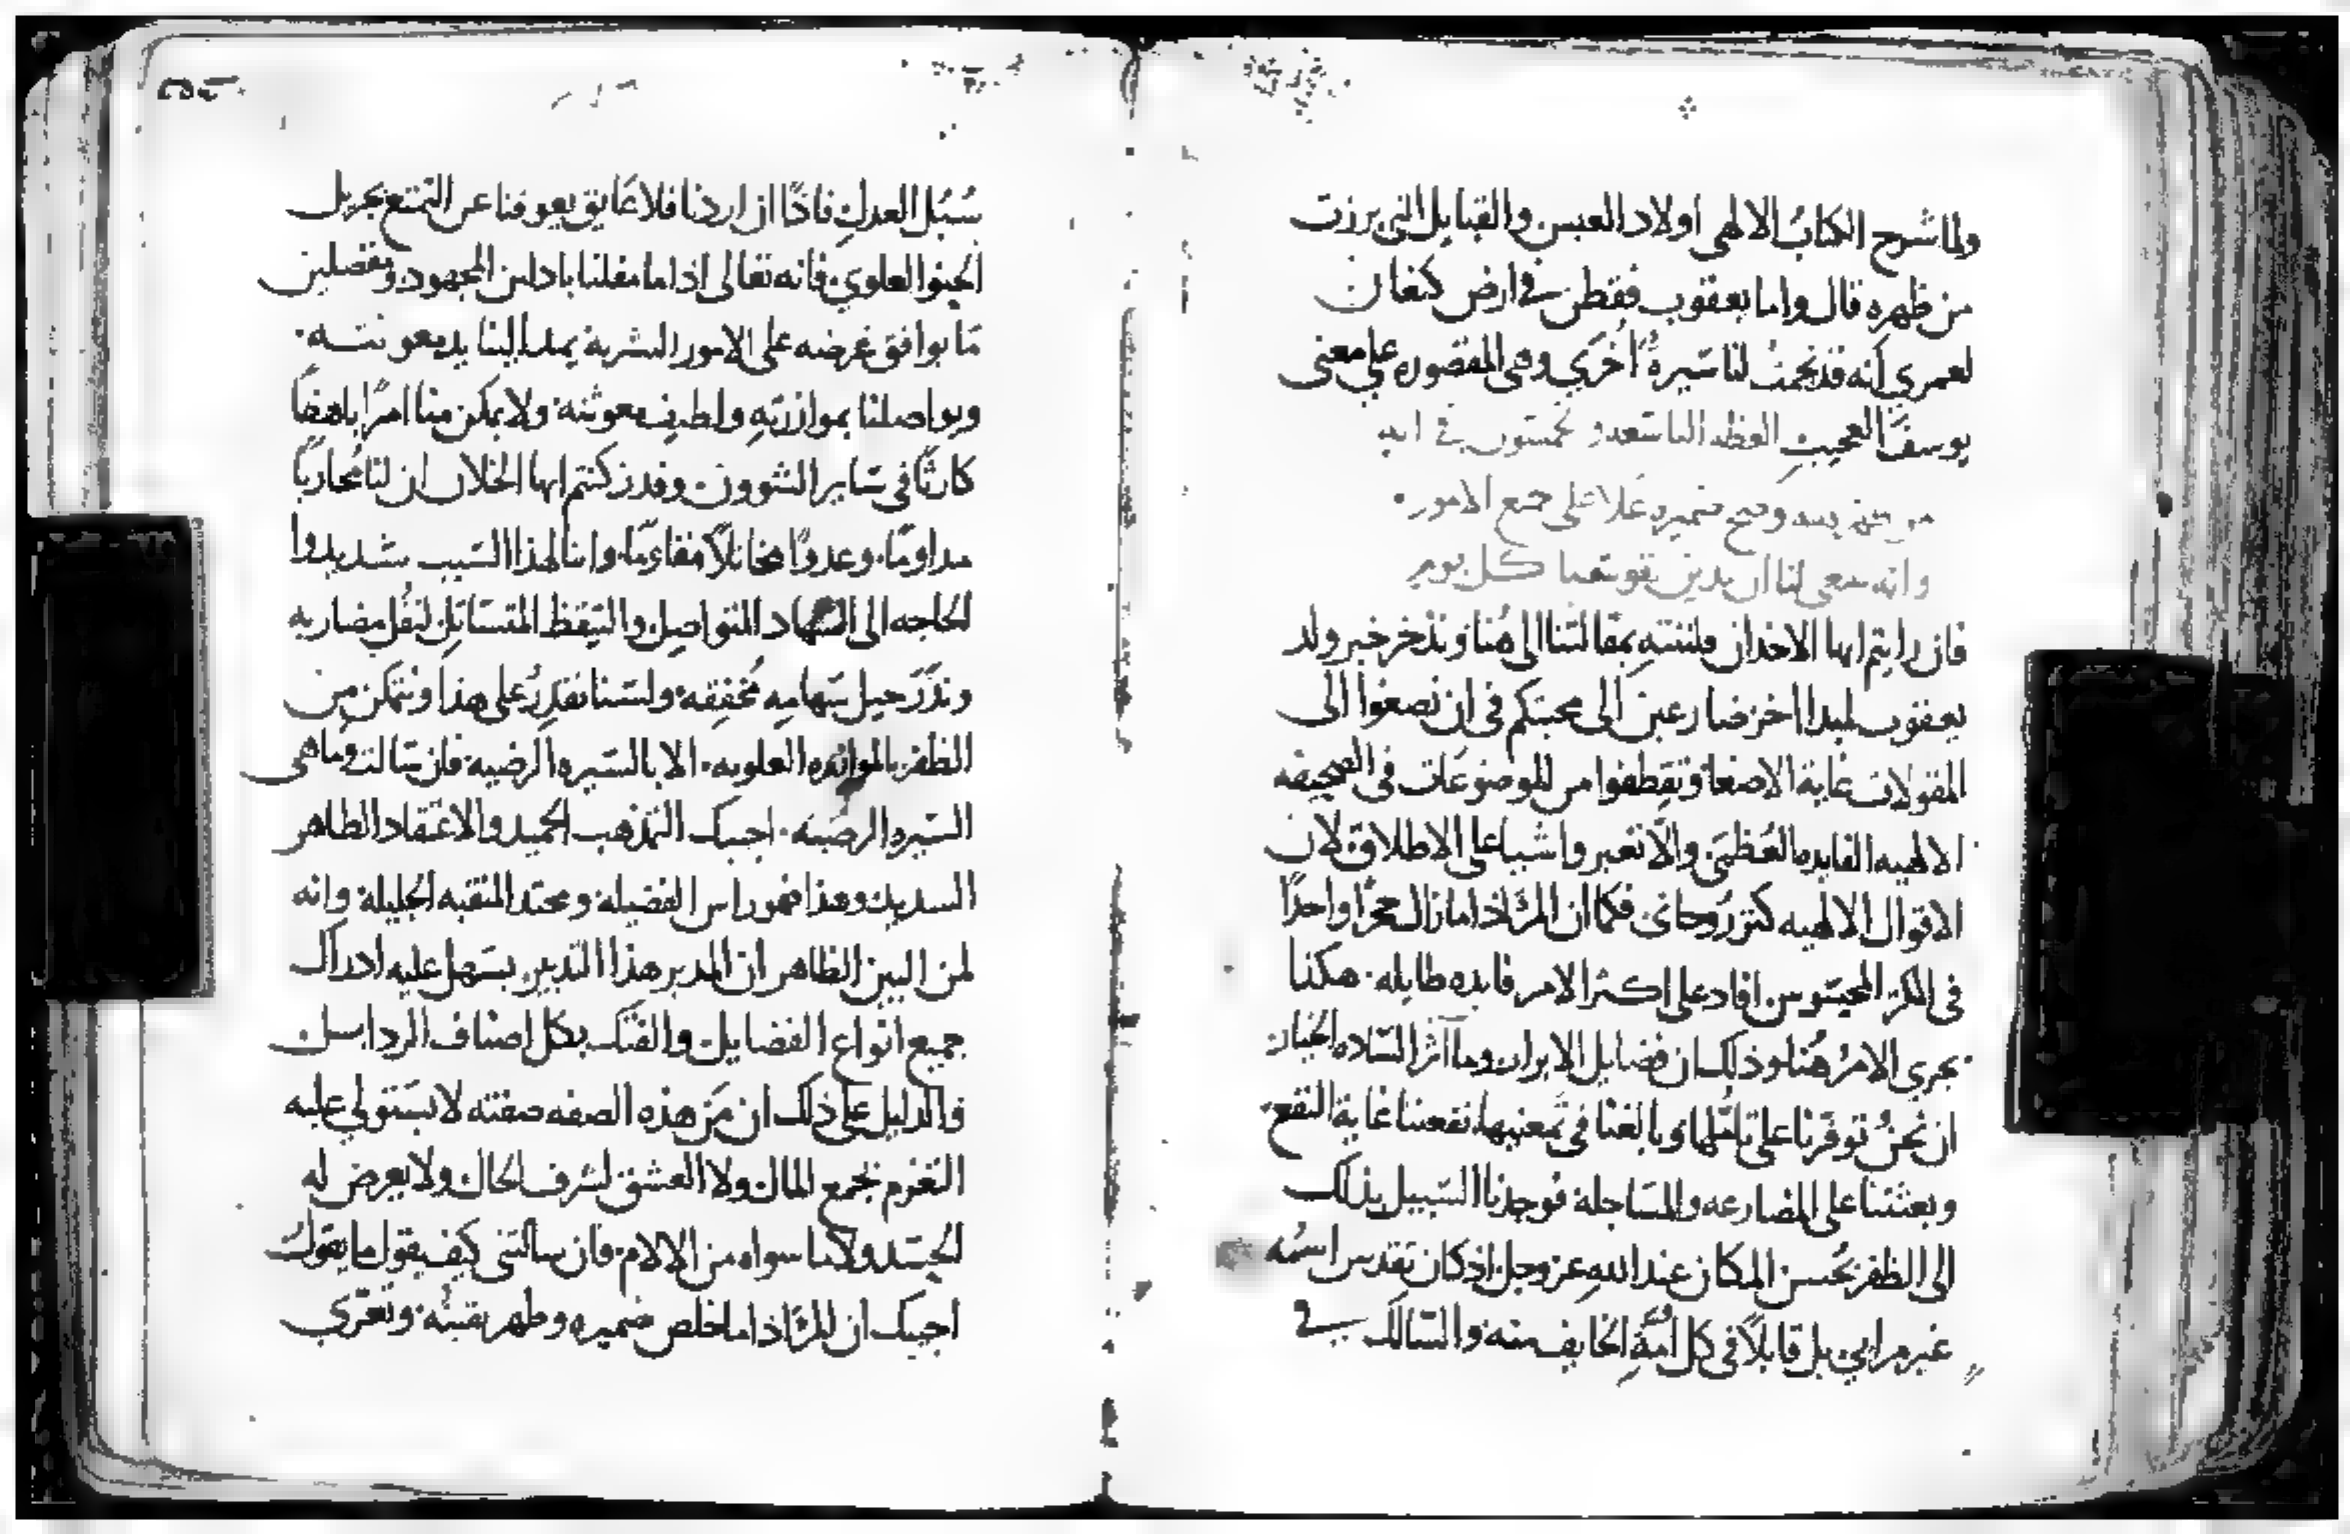 ولما شرح الكتاب الالهي اولاد العيس والقبايل التي برزت
من ظهره قال واما يعقوب فقطن في ارض كنعان
لعمري انه قد نجمت لنا سيرة اخري وهي المقصوره علي معني
يوسف العجيب العظه التاسعه و خمسون في انه
من تهذب وصح ضميره علا على جميع الامور
وانه ينبغي لنا ان ندين نفوسنا كل يوم
فان رايتم ايها الاخدان فلننته بمقالتنا الى هنا ونذخر خبر ولد
يعقوب لميدا اخر ضارعين الى محبتكم في ان تصغوا الى
المقولات غاية الاصغا وتقطفوا من الموضوعات في الصحيفه
الالهيه الفايده العظمى والا تغبروا شيا على الاطلاق لان
الاقوال الالهيه كنز روحاني فكما ان المرء اذا ما نال حجرا واحدا
في الكنز المحسوس افاد على اكثر الامر فايده طايله هكذا
يجري الامر هنا وذلك ان فضايل الابرار وما آثر الساده الخيار
ان نحن توفرنا على تاملها وبالغنا في تمعنيها نفعتنا غاية النفع
وبعثتنا على المضارعه والمساجله فوجدنا السبيل بذلك
الى الظفر بحسن المكان عند الله عز وجل اذ كان تقدس اسمه
غير مرايي بل قابلا في كل امة الخايف منه والسالك في
سبل العدل فاذا ان اردنا فلا عايق يعوقنا عن التمتع بجزيل
الحنو العلوي فانه تعالى اذا ما مقلنا باذلين المجهود ومفضلين
ما يوافق غرضه على الامور البشرية يمد الينا يد معونته
ويواصلنا بموازرته ولطيف معوثته ولا يمكن منا امرا باهضا
كارثا في ساير الشوون وقد زكنتم ايها الخلان ان لنا محاربا
مداوما وعدوا مخاتلا مقاوما واننا لهذا السبب شديدوا
الحاجه الى السهاد المتواصل والتيقظ المتساتل لنفل مضاربه
ونذر حيل سهامه مخفقه ولسنا نقدر على هذا ونتمكن من
الظفر بالموازره العلويه الا بالسيره الرضيه فان سالت وما هي
السيره الرضيه اجبتك التمذهب الحميد والاعتقاد الطاهر
السديد وهذا فهو راس الفضيله ومحتد المنقبه الجليلة وانه
لمن البين الظاهر ان المدبر هذا التدبير يسهل عليه ادراك
جميع انواع الفضايل والفتك بكل اصناف الردايل
والدليل على ذلك ان من هذه الصفه صفته لا يستولي عليه
التغرم بجمع المال ولا العشق لشرف الحال ولا يعرض له
الحسد ولا ما سواه من الالام فان سالتني كيف يقول ما يقول
اجبتك ان المرء اذا ما خلص ضميره وطهر يقينه وتعرى